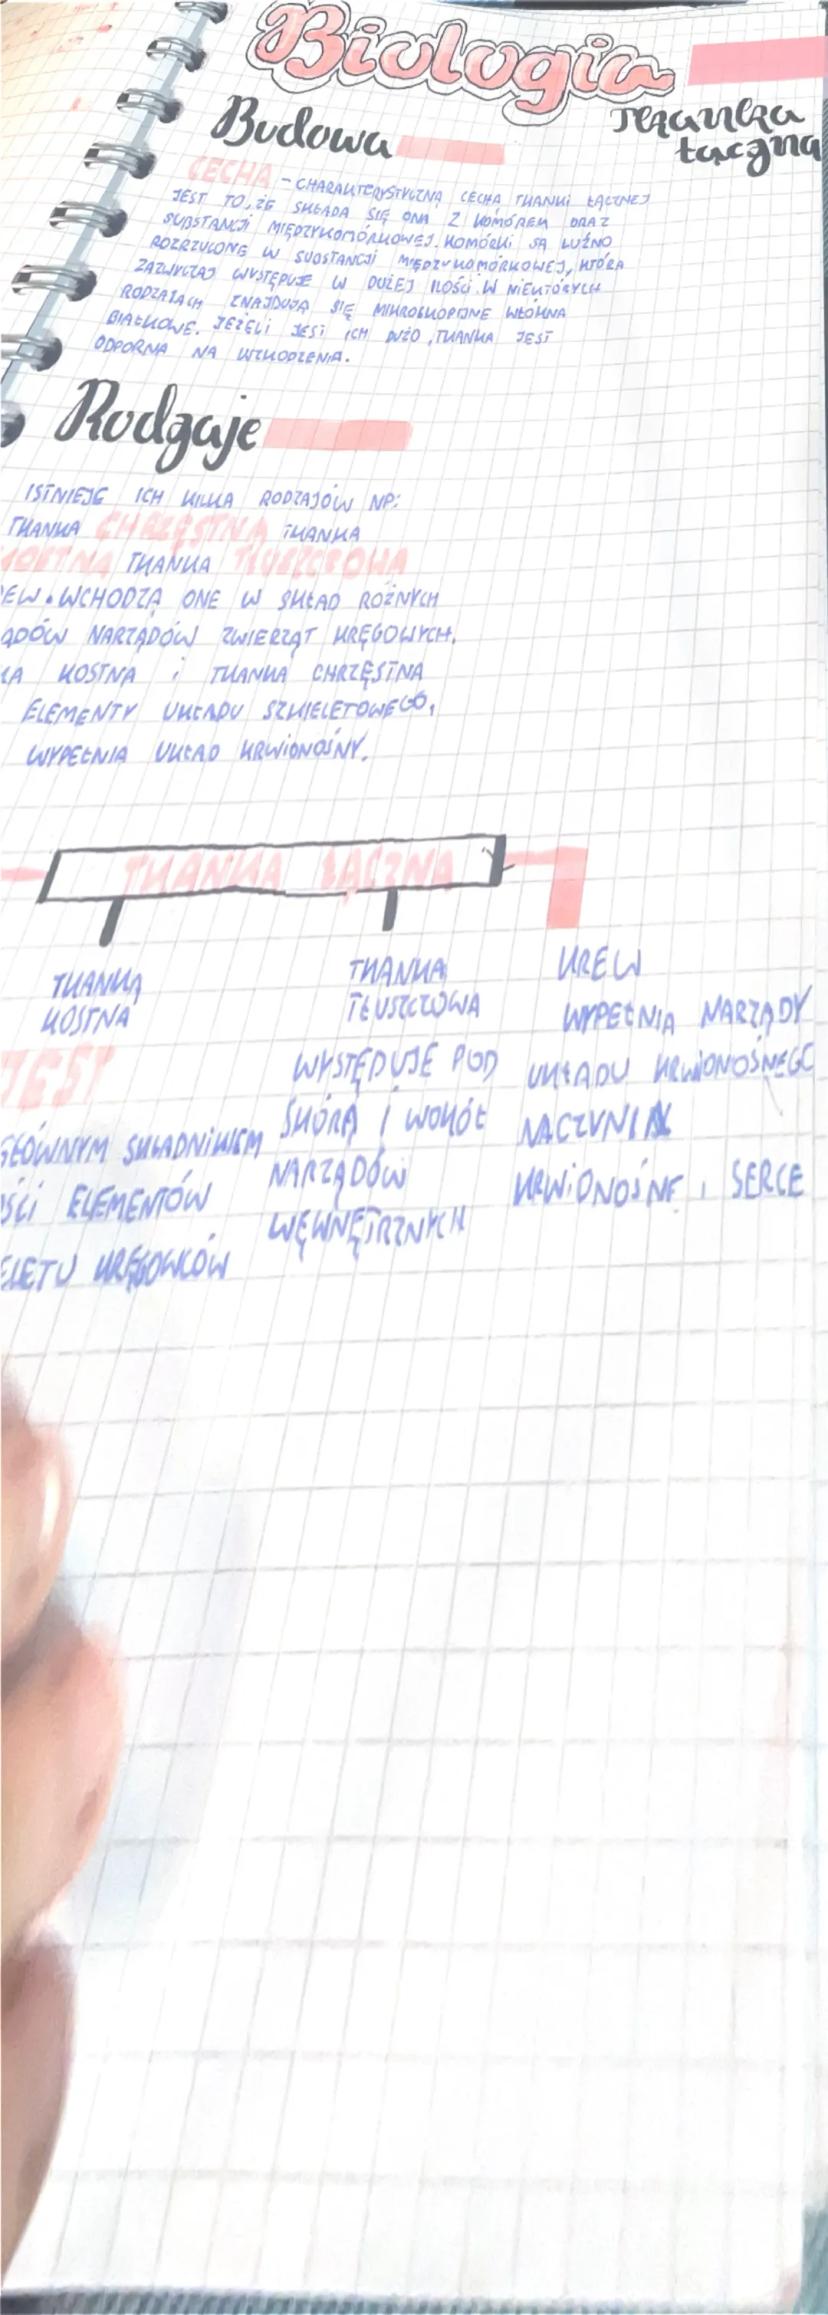 Biologia
Tkanka
łączna
Budowa
CECHA - CHARAKTERYSTYCZNĄ CECHĄ TKANKI ŁĄCZNEJ
JEST TO, ŻE SKŁADA SIĘ ONA Z KOMÓREK ORAZ
SUBSTANCJI MIĘDZYKOMÓRKOWEJ. KOMÓRKI SĄ LUŹNO
ROZRZUCONE W SUBSTANCJI MIĘDZYKOMÓRKOWEJ, KTÓRA
ZAZWYCZAJ WYSTĘPUJE W DUŻEJ ILOŚCI. W NIEKTÓRYCH
RODZAJACH ZNAJDUJĄ SIĘ MIKROSKOPIJNE WŁÓKNA
BIAŁKOWE. JEŻELI JEST ICH DUŻO, TKANKA JEST
ODPORNA NA UZKODZENIA.
Rodzaje
ISTNIEJE ICH KILKA RODZAJÓW NP:
TKANKA CHRZĘSTNA TKANKA
KOSTNA TKANKA TŁUSZCZOWA
EW. WCHODZĄ ONE W SKŁAD RÓŻNYCH
ADÓW NARZĄDÓW ZWIERZĄT KRĘGOWYCH.
KA KOSTNA i TKANKA CHRZĘSTNA
ELEMENTY UKŁADU SZKIELETOWEGO,
WYPEŁNIA UKŁAD KRWIONOŚNY.
TKANKA ŁĄCZNA
TKANKA
KOSTNA
JEST
GŁÓWNYM SKŁADNIKIEM
ŚCI ELEMENTÓW
ELETU KRĘGOWCÓW
TKANKA
TŁUSZCZOWA
WYSTĘPUJE POD
SKÓRĄ I WOKÓŁ
NARZĄDÓW
WĘWNĘTRZNYCH
KREW
WYPEŁNIA NARZĄDY
UKŁADU KRWIONOŚNEGO
NACZYNIA
KRWIONOŚNE i SERCE